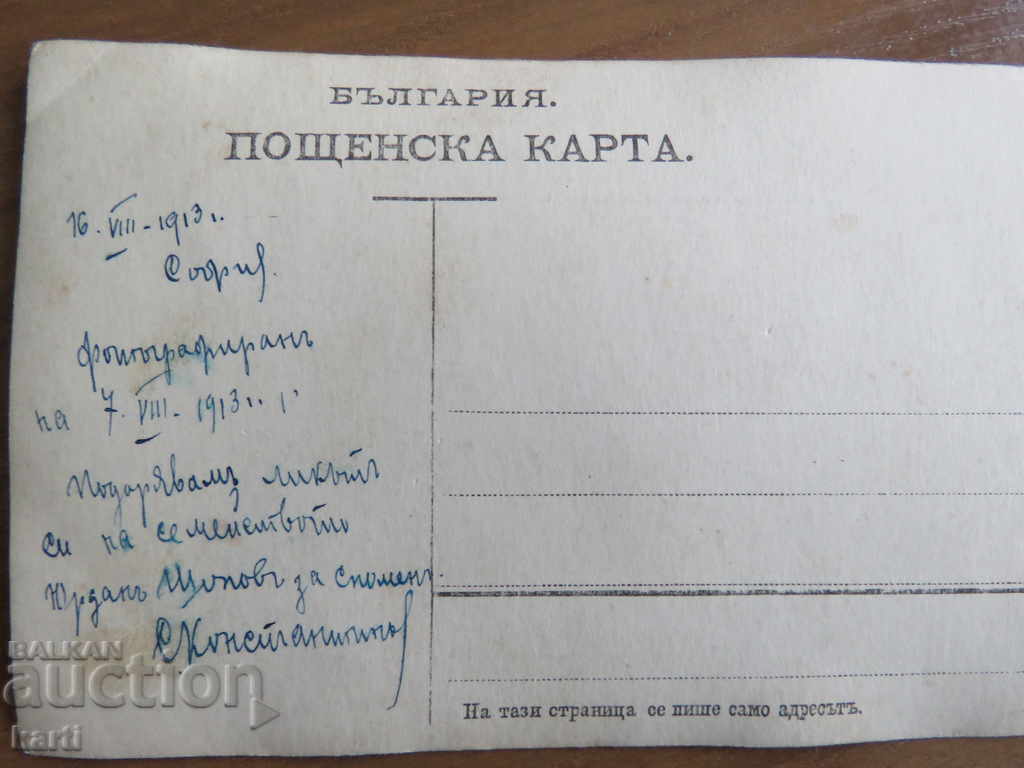 БЪЛГАРИЯ.
ПОЩЕНСКА КАРТА.
16. VIII - 1913 г.
София.
Фотографиранъ
на 7. VIII. - 1913 г.
Подарявамъ ликътъ
си на семейството
Юрданъ Щоповъ за споменъ
СКонстантинов
На тази страница се пише само адресътъ.
BALKAN
auction
karti